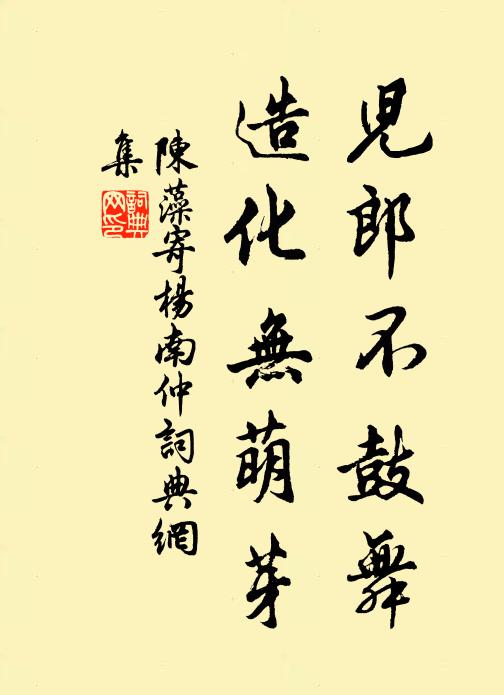 兒郎不鼓舞
造化無萌芽
陳藻寄楊南仲詞典網
集
詞典网印